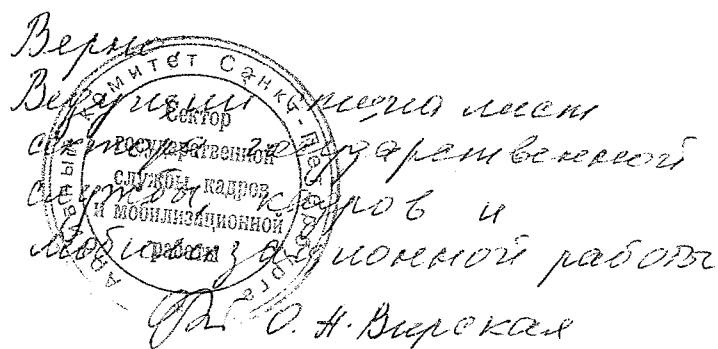 Верно
Ведущий специалист
сектора государственной
службы, кадров и
мобилизационной работы
О. Н. Вирская
Архивный комитет Санкт-Петербурга
Сектор
государственной
службы, кадров
и мобилизационной
работы